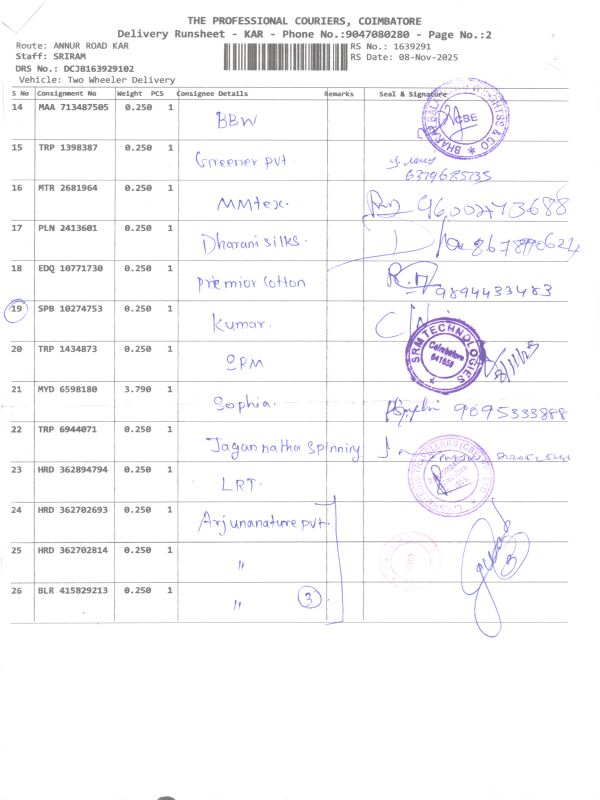 THE PROFESSIONAL COURIERS, COIMBATORE
Delivery Runsheet - KAR - Phone No.:9047080280 - Page No.:2
Route: ANNUR ROAD KAR RS No.: 1639291
Staff: SRIRAM RS Date: 08-Nov-2025
DRS No.: DCJB163929102
Vehicle: Two Wheeler Delivery
S No Consignment No Weight PCS Consignee Details Remarks Seal & Signature
14 MAA 713487505 0.250 1 BBW CBE
15 TRP 1398387 0.250 1 Greener pvt.
6379685735
16 MTR 2681964 0.250 1 MMtex.
17 PLN 2413601 0.250 1 Dharani silks.
18 EDQ 10771730 0.250 1 Premior Cotton 9894433483
19 SPB 10274753 0.250 1 Kumar.
20 TRP 1434873 0.250 1 OPM SRM TECHNOLOGIES Coimbatore
21 MYD 6598180 3.790 1 Sophia. 9095333888
22 TRP 6944071 0.250 1 Jagannatha Spinning
23 HRD 362894794 0.250 1 LRT.
24 HRD 362702693 0.250 1 Arjunanature pvt.
25 HRD 362702814 0.250 1 "
26 BLR 415829213 0.250 1 " 3